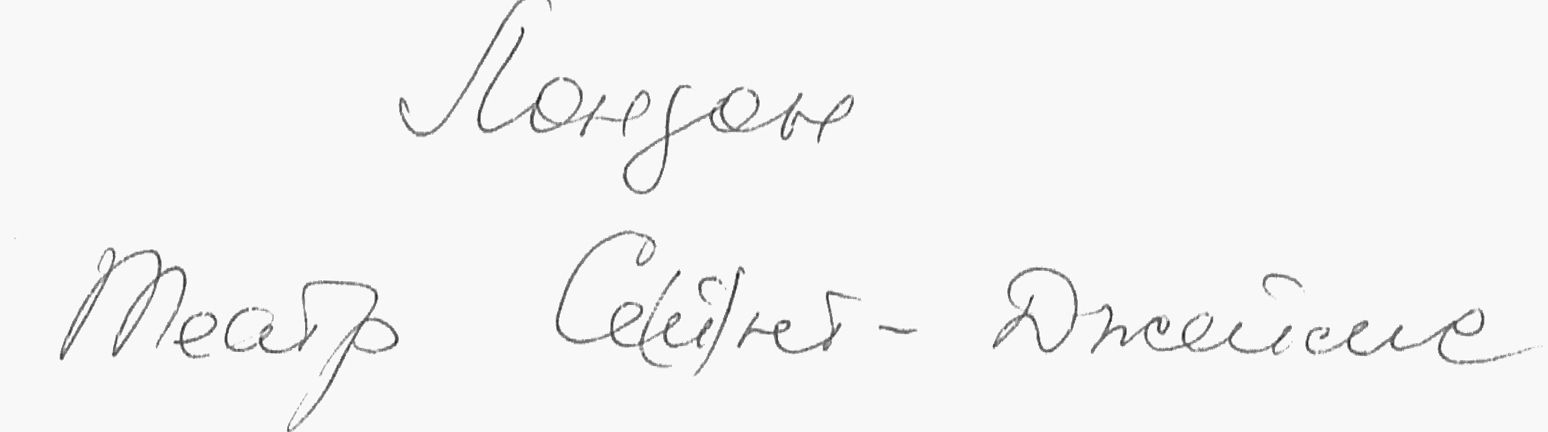 Лондон
Театр Се(й)нт- Джеймс